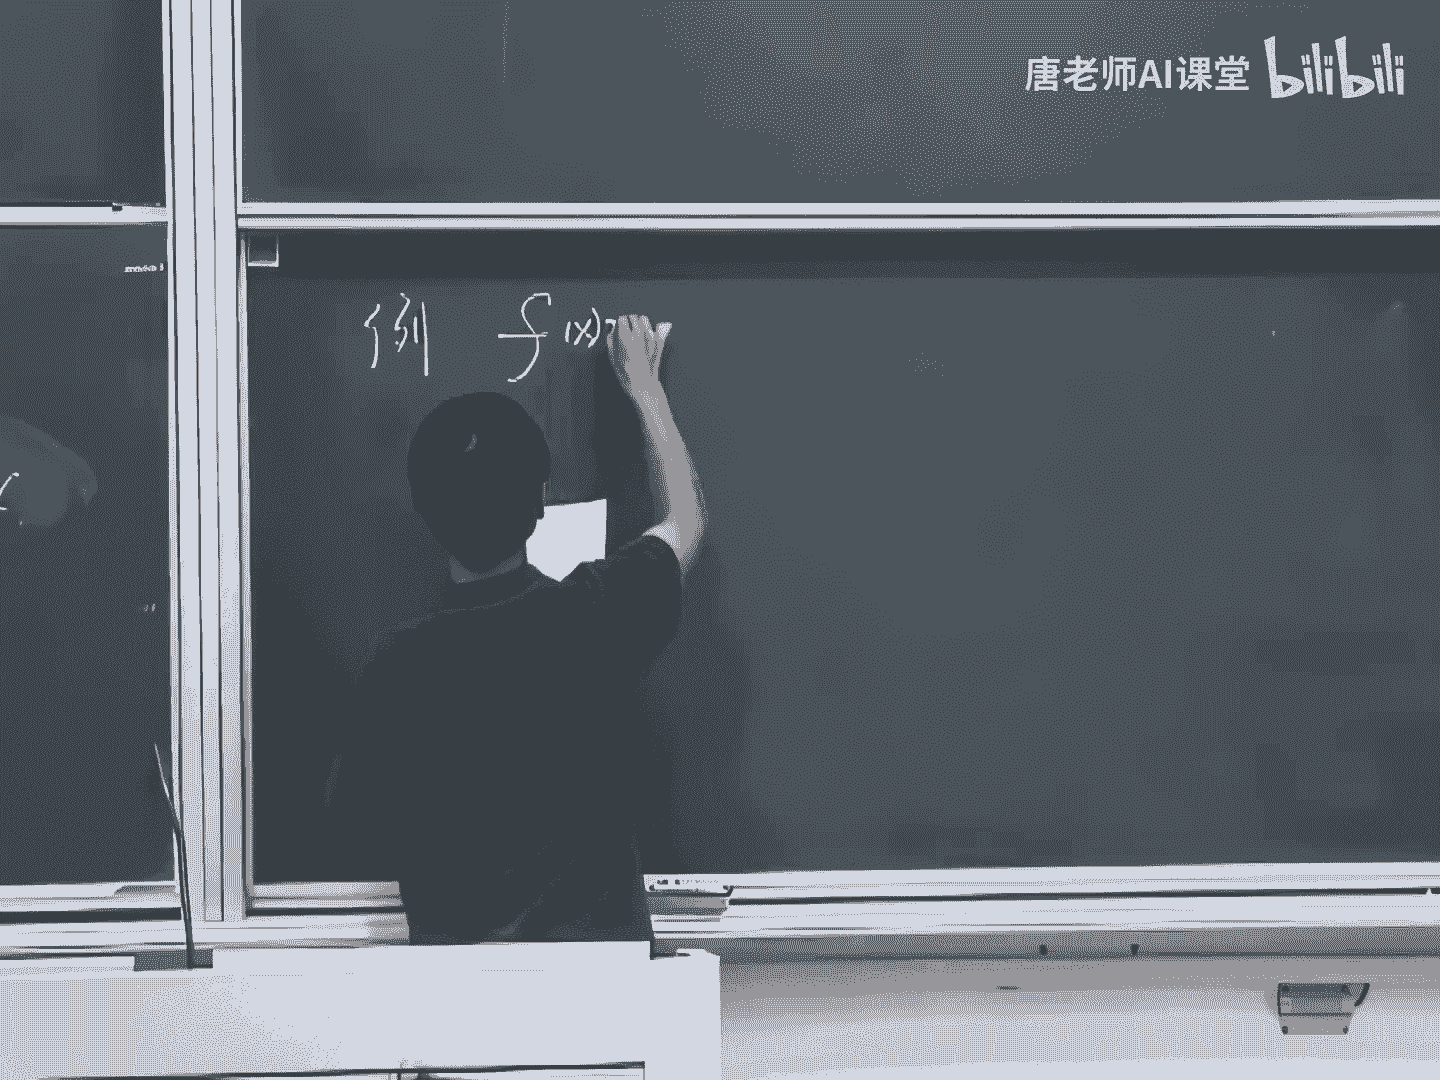 唐老师AI课堂 bilibili
例 f(x)=